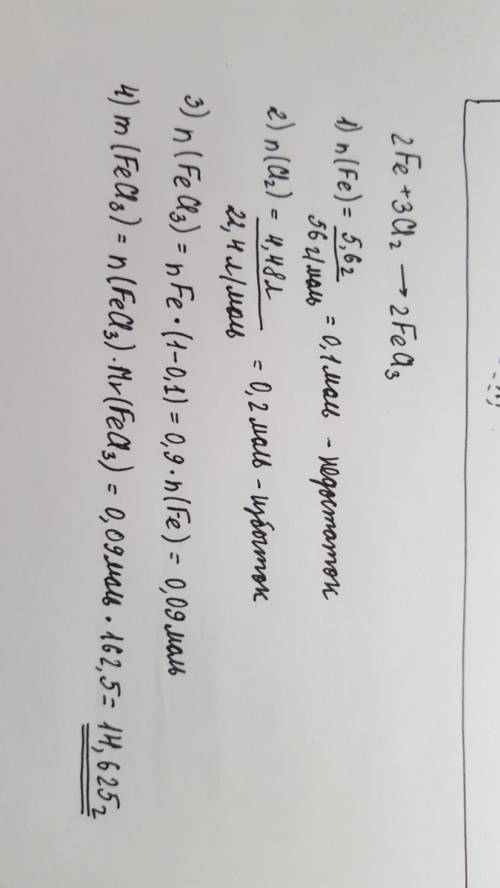 2Fe + 3Cl₂ → 2FeCl₃
1) n(Fe) = 5,6г / 56 г/моль = 0,1 моль - недостаток
2) n(Cl₂) = 4,48л / 22,4 л/моль = 0,2 моль - избыток
3) n(FeCl₃) = nFe · (1-0,1) = 0,9 · n(Fe) = 0,09 моль
4) m(FeCl₃) = n(FeCl₃) · Mr(FeCl₃) = 0,09 моль · 162,5 = 14,625г